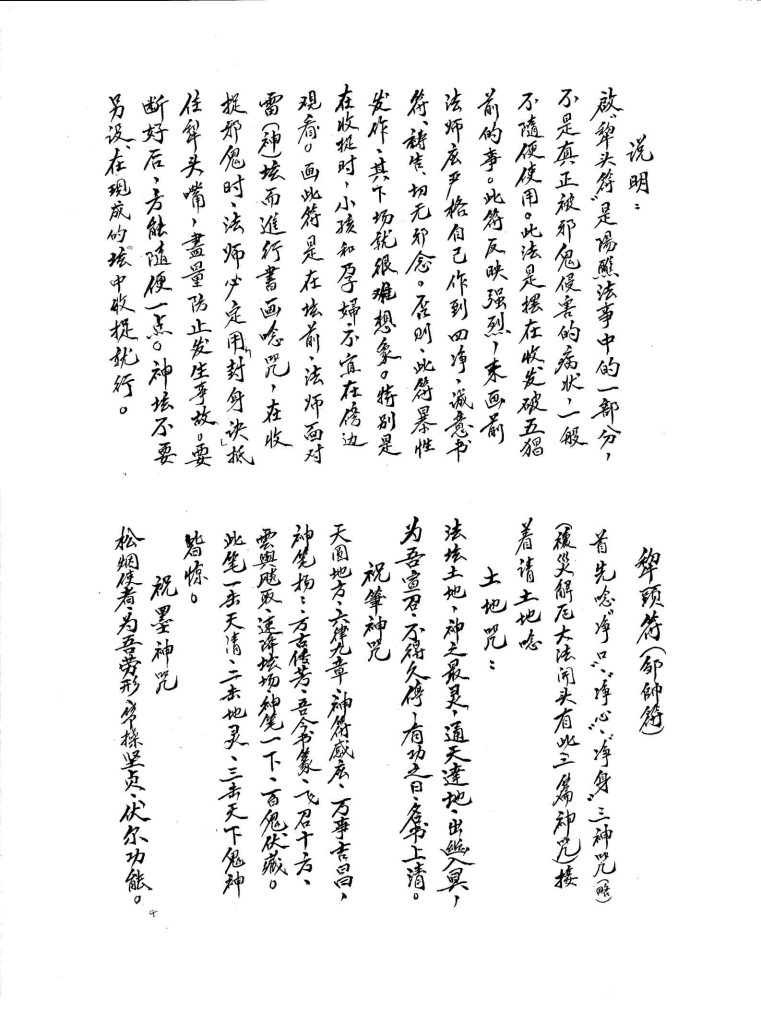 说明：
啟“犂头符”是陽醮法事中的一部分，
不是真正被邪鬼侵害的病状，一般
不隨便使用。此法是摆在收发破五猖
前的事。此符反映强烈，未画前
法师应严格自己作到四净，诚意书
符、祷告、切无邪念。否则，此符暴性
发作，其下场就很难想象。特别是
在收捉时，小孩和孕婦不宜在傍边
观看。画此符是在坛前，法师面对
雷（神）坛而進行書画唸咒，在收
捉邪鬼时，法师必定用“封身”诀抵
住犂头嘴，盡量防止发生事故。要
断好后，方能隨便一点。神坛不要
另设，在现成的“坛”中收捉就行。
犂頭符（邹帥符）
首先唸“净口”、“净心”、“净身”三神咒（略）
（禳災解厄大法開头有此三篇神咒）接
着请土地唸
土地咒：
法坛土地，神之最灵，通天達地，出幽入冥，
为吾宣召，不得久停，有功之日，名书上清。
祝筆神咒
天圆地方，六律九章，神符感应，万事吉昌，
神笔扬扬，万古传芳，吾今书篆，飞召十方，
雲輿飚取，速降坛场，神笔一下，百鬼伏藏。
此笔一击天清，二击地灵，三击天下鬼神
皆惊。
祝墨神咒
松烟使者，为吾劳形，常操坚贞，伏尔功能。